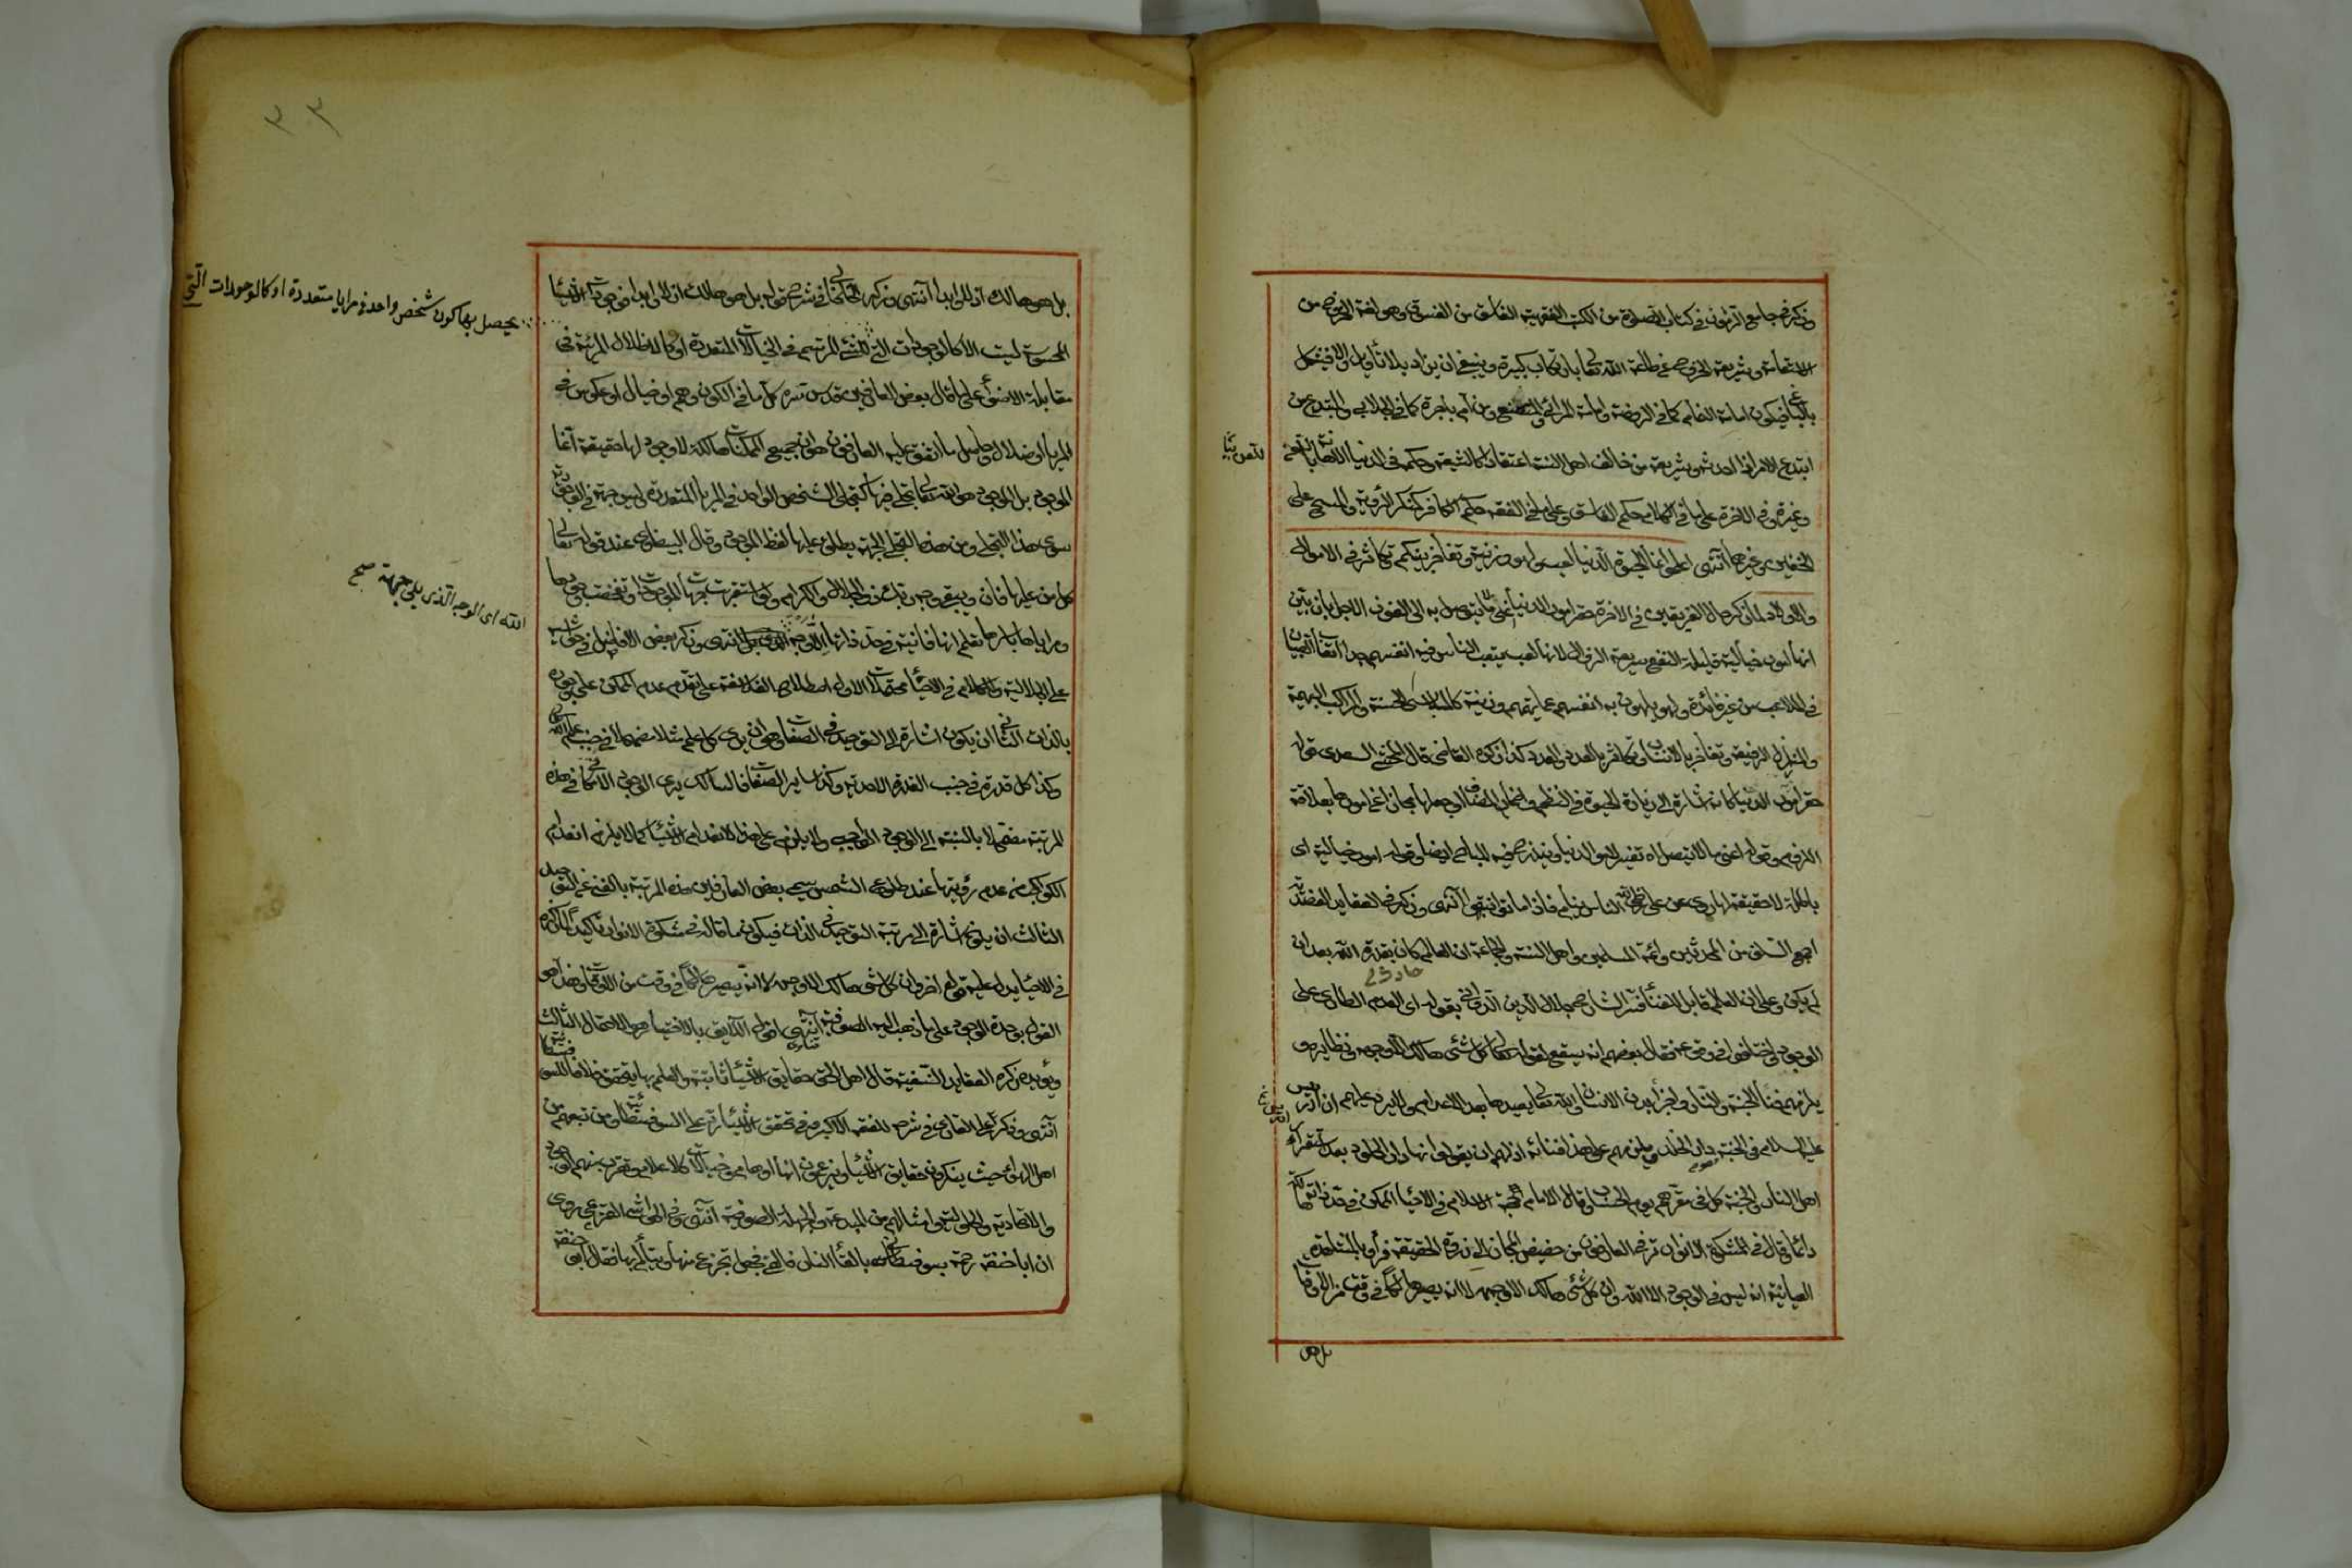 وذكر في جامع الرموز في كتاب الصلوة من الكتب الفقهية الفاسق من الفسق وهو لغة الخروج من
الاستقامة وشريعة الخروج عن طاعة الله تعالى بارتكاب كبيرة وينبغي ان يزاد بلا تأويل والا فيشكل
بالباغي فيكون امامة الظالم كما في الروضة وامامة المرائي والمتصنع ومن أم باجرة كما في الجلابي والمبتدع من
ابتدع الامر اذا احدثه وشريعة من خالف اهل السنة اعتقادا كالشيعة وحكمه في الدنيا الاهانة باللعن
وغيره وفي الاخرة على ما في الكلام حكم الفاسق وعلى ما في الفقه حكم الكافر كمنكر الرؤية والمسح على
الخفين وغيرهما انتهى اعلموا انما الحيوة الدنيا لعب ولهو وزينة وتفاخر بينكم وتكاثر في الاموال
والاولاد لما ذكر حال الفريقين في الاخرة حقر امور الدنيا اعني ما لا يتوصل به الى الفوز الاجل بان بين
انها امور خيالية قليلة النفع سريعة الزوال لانها لعب يتعب الناس فيه انفسهم جدا اتعاب الصبيان
في الملاعب من غير فائدة ولهو يلهون به انفسهم عما يهمهم وزينة كالملابس الحسنة والمراكب البهية
والمنازل الرفيعة وتفاخر بالانساب وتكاثر بالعدد والعدد كذا ذكره القاضي قال المحشي السعدي قوله
حقر امور الدنيا كانه اشارة الى زيادة الحيوة في النظم واضمار المضاف او جعلها مجازا عن امورها بعلاقة
اللزوم وقوله اعني ما لا يتوصل اه تفسير لامور الدنيا ويندرج فيه المباح ايضا وقوله امور خيالية اى
باطلة لا حقيقة لها روى عن علي رضي الله الناس نيام فاذا ماتوا انتبهوا انتهى وذكر في العقايد العضدية
اجمع السلف من المحدثين وائمة المسلمين واهل السنة والجماعة ان العالم كان بقدرة الله بعد ان
حادث
لم يكن وعلى ان العالم قابل للفناء فسر الشارح جلال الدين الدواني بقوله اى العدم الطارى على
الوجود واختلفوا في وقوعه فقال بعضهم انه سيقع لقوله تعالى كل شئ هالك الا وجهه ونظايره و
يلزمهم فناء الجنة والنار واجزاء بدن الانسان والله تعالى يعيدها بعد الاعدام ولا يرد عليهم ان ادريس
عليه السلام في الجنة دار الخلد ويلزمهم على هذا فنائه اذ لهم ان يقولوا انها دار الخلود بعد استقرار
اهل النار والجنة كل في مقرهم يوم الحساب وقال الامام حجة الاسلام في الاحياء الممكن في حد ذاته هالك
دائما وقال في المشكوة الانوار ترقى العارفون من حضيض المجاز الى ذروة الحقيقة فرأوا بالمشاهدة
العيانية انه ليس في الوجود الا الله وان كل شئ هالك الا وجهه لا انه يصير هالكا في وقت من الاوقات
بل هو
بل هو هالك ازلا وابدا انتهى وذكر الخلخالي في شرح قوله بل هو هالك ازلا وابدا فوجودات الاشياء
المحسوسة ليست الا كالوجودات التي للشئ المرتسم في الخيالات المتعددة او كالاظلال المرئية في
يحصل بها كون شخص واحد في مرايا متعددة او كالوجودات التي
مقابلة الاضواء على ما قال بعض العارفين قدس سره كل ما في الكون وهم او خيال او عكوس في
المرايا او ضلال وحاصل ما اتفق عليه العارفون هو ان جميع الممكنات هالكة لا وجود لها حقيقة انما
الموجود بل الوجود هو الله تعالى تجلى فيها كتجلى الشخص الواحد في المرايا المتعددة ليس جهة في الوجود
سوى هذا التجلى ومن هذه التجلى الجهة يطلق عليها لفظ الموجود وقال البيضاوى عند قوله تعالى
كل من عليها فان ويبقى وجه ربك ذو الجلال والاكرام ولو استقريت جهات الموجودات وتفحصت وجوهها
الله اى الوجه الذى يلى جهته صح
وجدتها باسرها فانية في حد ذاتها الا وجه الله انتهى وذكر بعض الافاضل في حواشيه
على الجلالية والكلام في الاحياء محتملات الاول اصطلاح الفلاسفة على تقدم عدم الممكن على وجوده
بالذات الثاني ان يكون اشارة الى التوحيد في الصفات وهو ان يرى كل علم مثلا مضمحلا في جنب علم الله
وكذا كل قدرة في جنب القدرة الاحدية وكذا ساير الصفات فالسالك يرى الوجود الامكاني في هذه
المرتبة مضمحلا بالنسبة الى الوجود الواجب ولا يلزم على هذا انعدام الاشياء كما لا يلزم انعدام
الكواكب من عدم رؤيتها عند طلوع الشمس يسمى بعض العارفين هذه المرتبة بالفناء في التوحيد
الثالث ان يكون اشارة الى مرتبة التوحيد الذاتي فيكون ما قاله في مشكوة الانوار تأكيدا لما ذكره
في الاحياء يدل عليه قوله اخر وان كل شئ هالك الا وجهه لا انه يصير هالكا في وقت من الاوقات وهذا هو
القول بوحدة الوجود على ما ذهب اليه الصوفية انتهى اقول اللايق بالاختيار هو الاحتمال الثالث
ويؤيده ذكره العقايد النسفية قال اهل الحق حقايق الاشياء ثابتة والعلم بها متحقق خلافا للسوفسطائية
انتهى وذكر على القارى في شرح للفقه الاكبر وفي تحقق الاشياء رد على السوفسطائية ومن تبعهم من
اهل الاهواء حيث ينكرون حقايق الاشياء ويزعمون انها اوهام وخيالات كالاحلام ويقرب منهم الوجودية
والاتحادية والحلولية وامثالهم من المبتدعة والجهلة الصوفية انتهى وفي الحواشي روى
ان ابا حنيفة رحمه سوفسطائية بالقاء النار فالقى فجعل تجزع منها ويتألم بها فقال ابو حنيفة